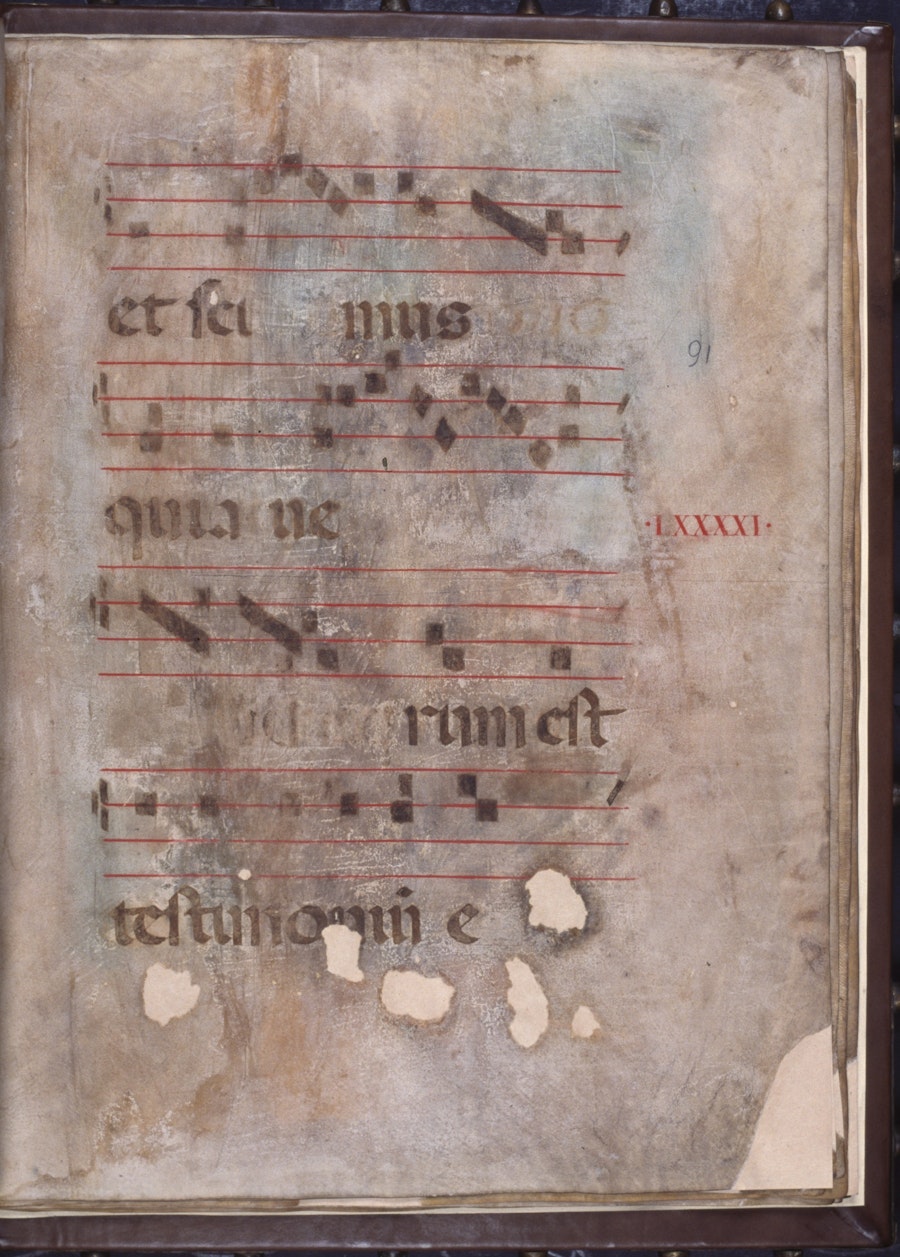 et sci mus
91
quia ue
·LXXXXI·
rum est
testimoniū e